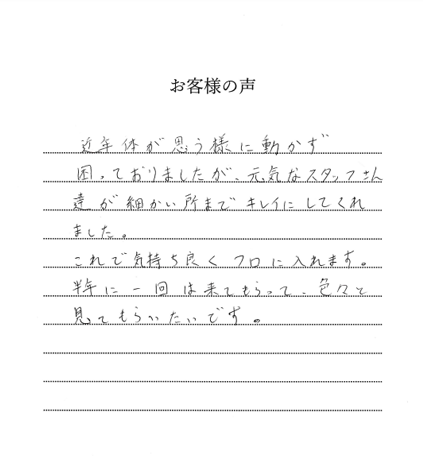 お客様の声
近年体が思う様に動かず
困っておりましたが、元気なスタッフさん
達が細かい所までキレイにしてくれ
ました。
これで気持ち良くフロに入れます。
半年に一回は来てもらって、色々と
見てもらいたいです。